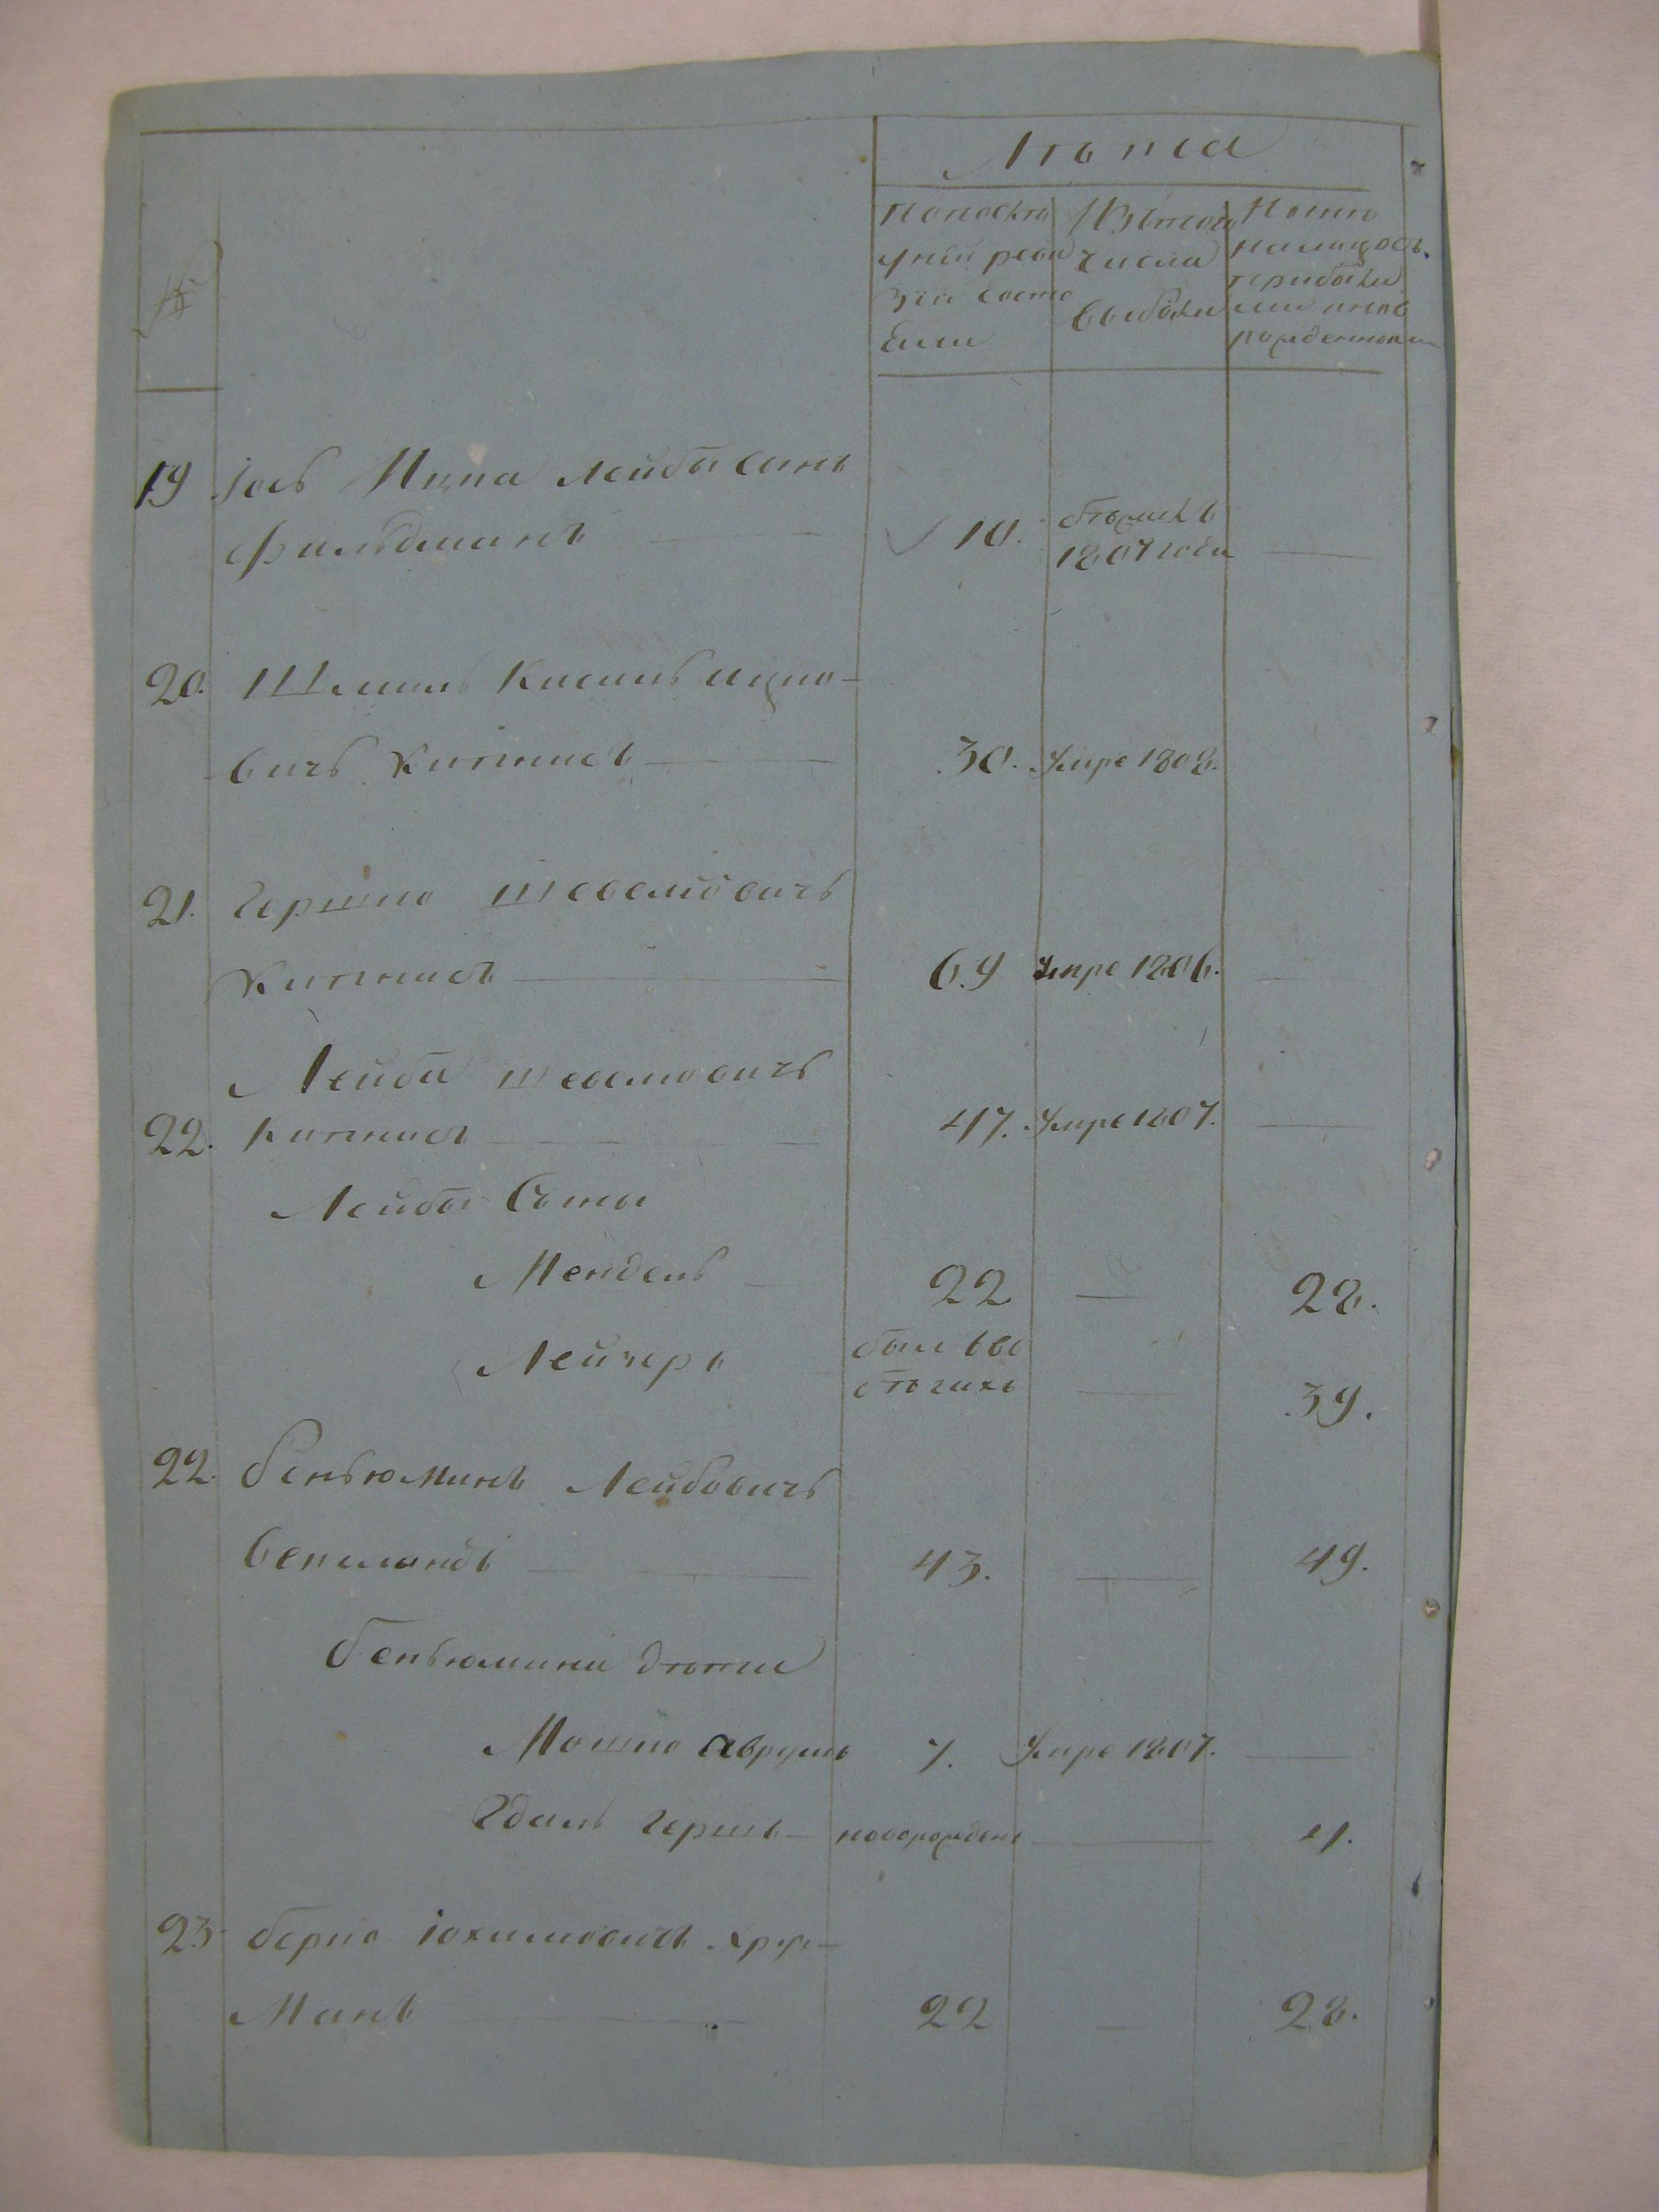 №
Лѣта
Попослѣ
дней реви
зіи состо
яли
Изтого
числа
выбыли
Ныне
налицо съ
прибылы
ми и ново
рожденными
19 Іось Ицка Лейбы сынъ
Фильдманъ — 10. бѣжалъ
1807 года —
20. Шмиль Кисиль Ицко-
вичъ Кипнисъ — 30. Умре 1808.
21. Гершко Шевелювичъ
Кипнисъ — 69 Умре 1806. —
Лейба Шевелювичъ
22. Кипнисъ — 47. Умре 1807. —
Лейбы Сыны
Мендель — 22 — 28.
Лейзеръ был вво
бѣгахъ — 39.
22. Беньюминъ Лейбовичъ
— 43. — 49.
Беньюмина дѣти
Мошко Аврумъ 7. Умре 1807. —
Гдаль Гершъ — новорожденъ — 4.
23. Берко Іохимовичъ Хру-
манъ — 22 — 28.